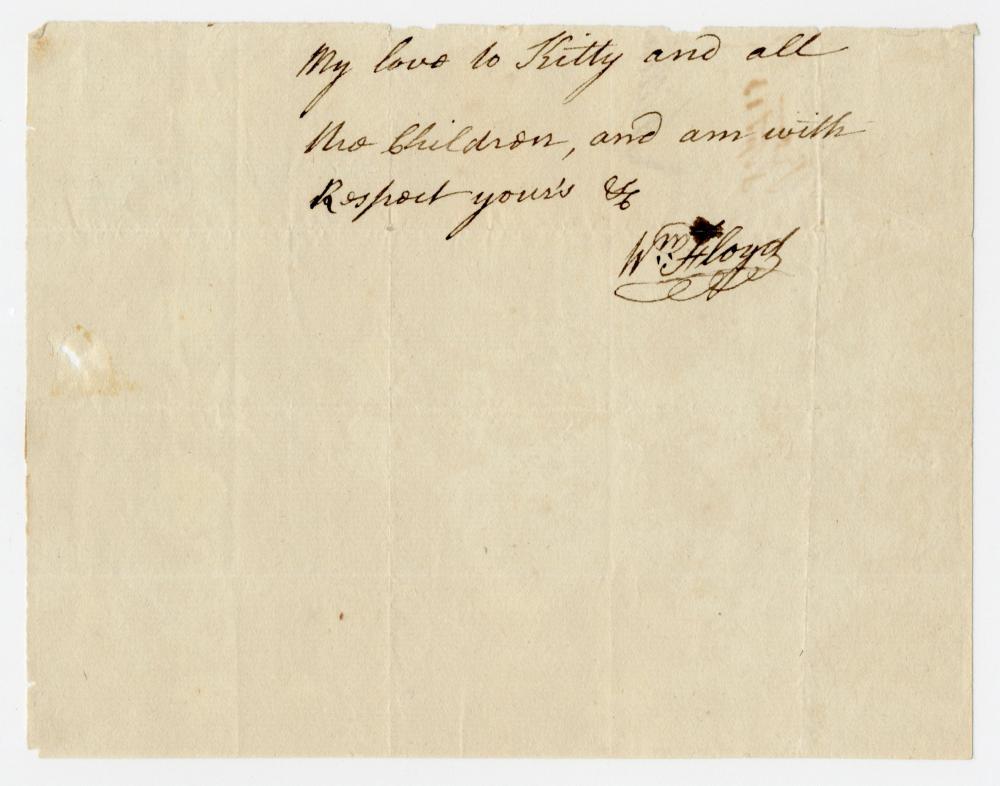 My love to Kitty and all
the Children, and am with
Respect your's &c
Wm Floyd